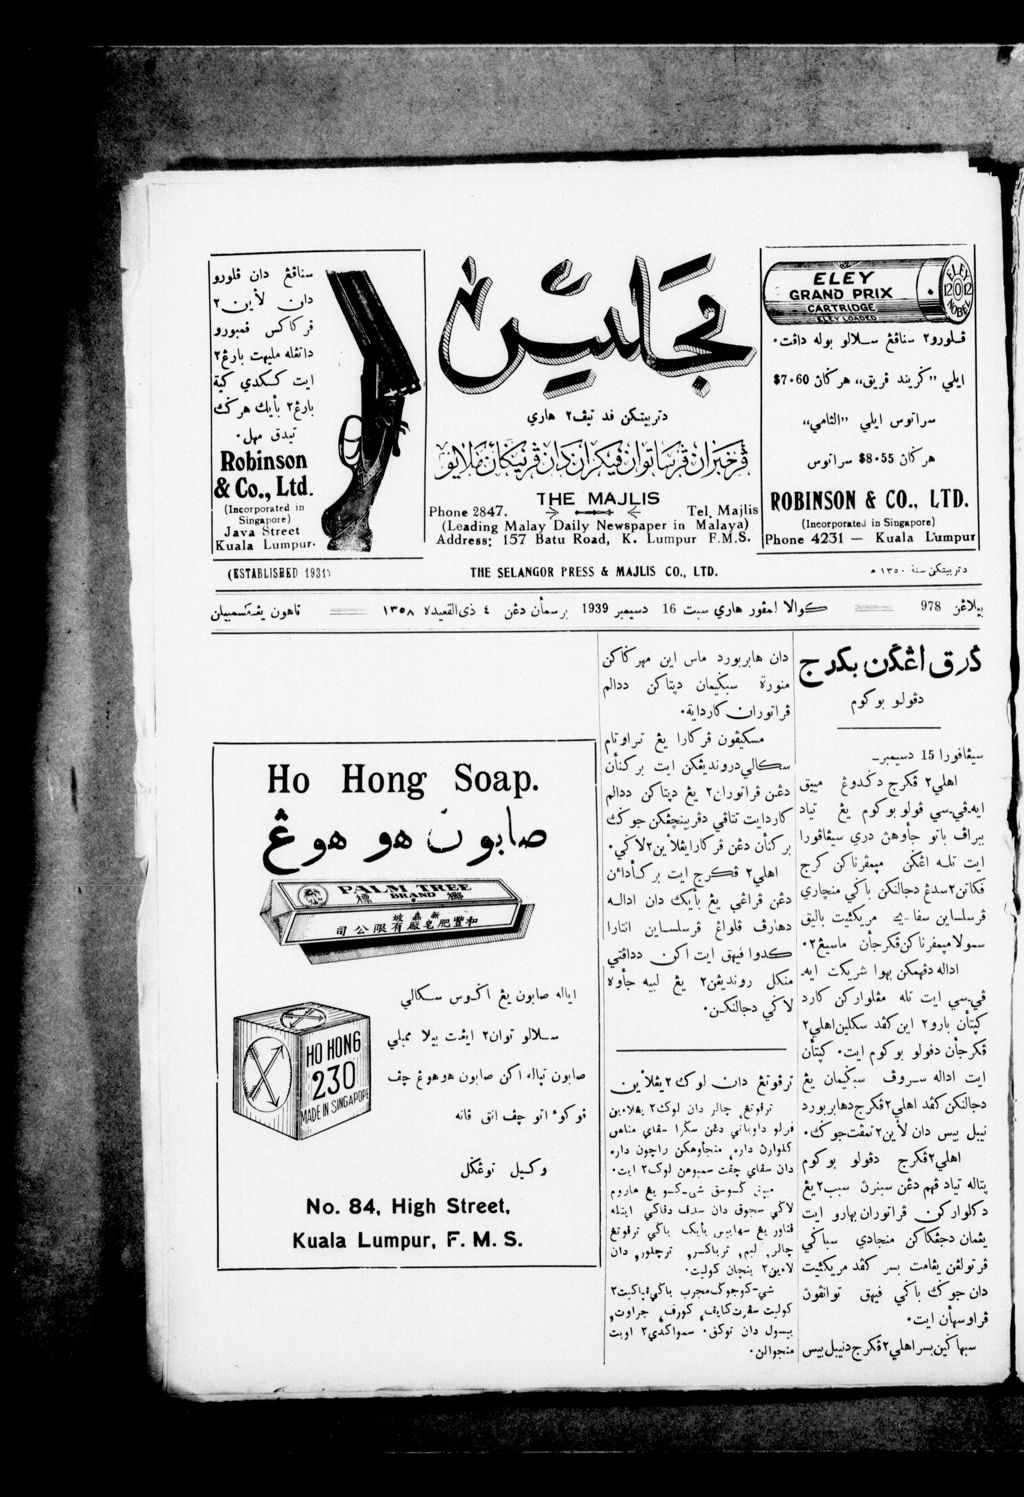 سناڤڠ دان ڤلورو
دان لأين ٢
ڤركاكس ڤمبورو
داتڠله مليهت بارڠ٢
ايت ككدي كيت
بارڠ٢ بأيك هرڬڽ
تيدق مهل.
Robinson
& Co., Ltd.
(Incorporated in
Singapore)
Java Street
Kuala Lumpur.
مجليس
دتربيتكن ڤد تيڤ٢ هاري
ڤرخبران ڤرساتوان فيكيران دان ڤرنياڬاءن ملايو
THE MAJLIS
Phone 2847. Tel. Majlis
(Leading Malay Daily Newspaper in Malaya)
Address: 157 Batu Road, K. Lumpur F.M.S.
ELEY
GRAND PRIX
CARTRIDGE
ELEY LOADED
ELEY
12 O 12
NOBEL
ڤلورو٢ سناڤڠ سلالو بوله داڤت.
ايلي ”ڬريند ڤريق„ هرڬاڽ $7.60
سراتوس ايلي ”الثامي„
هرڬاڽ $8.55 سراتوس
ROBINSON & CO., LTD.
(Incorporated in Singapore)
Phone 4231 — Kuala Lumpur
(ESTABLISHED 1931)
THE SELANGOR PRESS & MAJLIS CO., LTD.
دتربيتكن سنة ١٣٥٠
بيلاڠن 978
كوالا لمڤور هاري سبت 16 دسيمبر 1939 برسمأن دڠن ٤ ذي القعيده ١٣٥٨
تاهون يڠكسمبيلن
ڬرق اڠڬن بكرج
دڤولو بوكوم
سيڠاڤورا 15 دسيمبر—
اهلي٢ ڤكرج دڬدوڠ مييق
ايه.ڤي.سي ڤولو بوكوم يڠ تياد
بيراڤ باتو جأوهڽ دري سيڠاڤورا
ايت تله اڠڬن ميمڤرناكن كرج
ڤكاتن٢ سدڠ دجالنكن باڬي منچاري
ڤرسلساين سڤاي مريكئيت باليق
سمولا ميمڤرناكن ڤكرجأن ماسيڠ٢.
اداله دڤهمكن بهوا شريكت ايه.
ڤي.سي ايت تله مڠلواركن كارد
كڽتأن بارو٢ اين كڤد سكلين اهلي٢
ڤكرجأن دڤولو بوكوم ايت. كڽتأن
ايت اداله سروڤ سبڬيمان يڠ
دجالنكن كڤد اهلي٢ ڤكرج دهابربورد
نيبل بيس دان لأين٢ تمڤت جوڬ.
اهلي٢ ڤكرج دڤولو بوكوم
ڽتاله تياد ڤهم دڠن سبنرڽ سبب٢ يڠ
دكلواركن ڤراتوران بهارو ايت
يڠمان دجڠكاكن منجادي سباڬي
ڤرتولڠن يڠامت بسر كڤد مريكئيت
دان جوڬ باڬي ڤيهق توانڤون
ڤراوسهأن ايت.
سبهاڬين بسر اهلي٢ ڤكرج دنيبل بيس
دان هاربربورد ماس اين مهرڬاكن
منورة سبڬيمان دڽتاكن ددالم
ڤراتوران كاردايت.
مسكيڤون ڤركارا يڠ تراوتام
سكالي دروندیڠكن ايت بركنأن
دڠن ڤراتوران٢ يڠ دڽتاكن ددالم
كاردايت تتاڤي دڤربينچڠكن جوڬ
بركنأن دڠن ڤركارا يڠلأين٢ لاڬي.
اهلي٢ ڤكرج ايت بركأدائن
دڠن ڤراڠي يڠ بأيك دان اداله
دهارڤ ڤلواڠ ڤرسلساين انتارا
كدوا ڤيهق ايت اكن دداڤتي
منكل روندیڠن٢ يڠ لبيه جأوه
لاڬي دجالنكن.
ترڤوتڠ دان لوك٢ يڠلأين
ترڤوتڠ, چالر دان لوك٢ يڠلأين
ڤرلو داوباتي دڠن سڬرا سڤاي مناهن
كلوارن داره, منجأوهكن راچون داره
دان سڤاي چڤت سمبوهن لوك٢ ايت.
لاڬي سجوق دان سدڤ دڤاكي ايتله
ڤناور يڠ سهابيس بأيك باڬي ترڤوتڠ
چالر, لبم, ترباكر, ترچلور, دان
لأين٢ بنچان كوليت.
كوليت سڤرت كايڤ, كورڤ, جراوت,
بيسول دان توكق. سمواكدي٢ اوبت
منجوالن.
Ho Hong Soap.
صابون هو هوڠ
PALM TREE
BRAND
標 椰
新嘉坡
和豐肥皂廠有限公司
HO HONG
230
MADE IN SINGAPORE
اياله صابون يڠ اڬوس سكالي
سلالو توان٢ ايڠت بيلا ممبلي
صابون ڽياله اكن صابون هوهوڠ چڤ
ڤوكوء اتو چڤ انق ڤانه
وكيل توڠڬل
No. 84, High Street,
Kuala Lumpur, F. M. S.